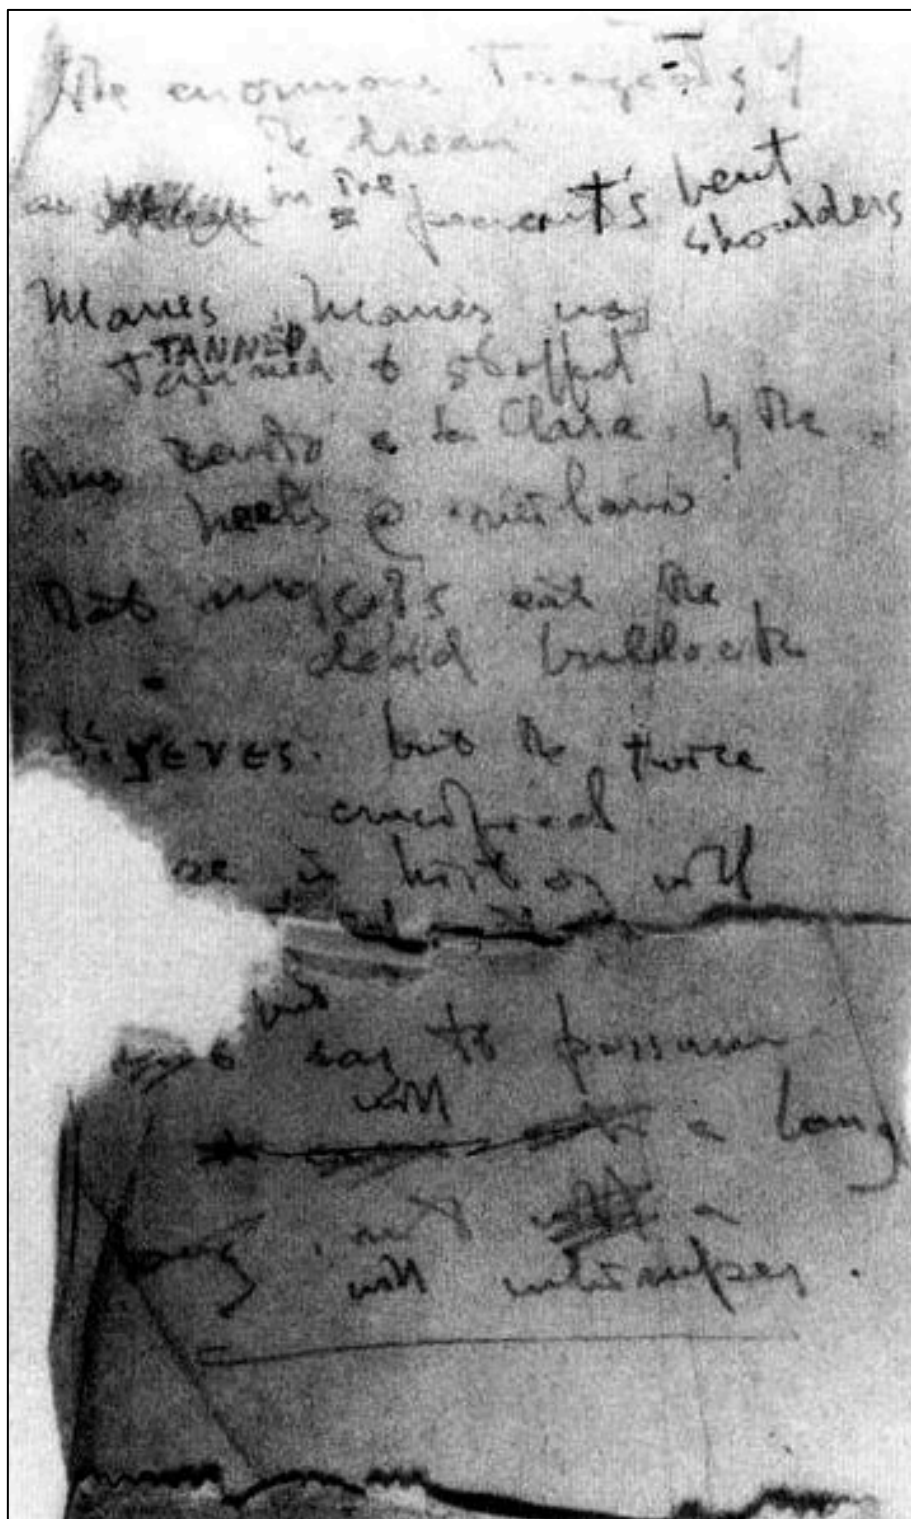 The enormous Tragedy of
the dream
in the peasant's bent
shoulders
Manes, Manes was
TANNED
Tanned & stuffed
Thus la Clara, by the
heels @ Milano
That maggots eat the
dead bullock
but the twice
crucified
in history will
say to possum
with
a bang
not
a
with whimper.